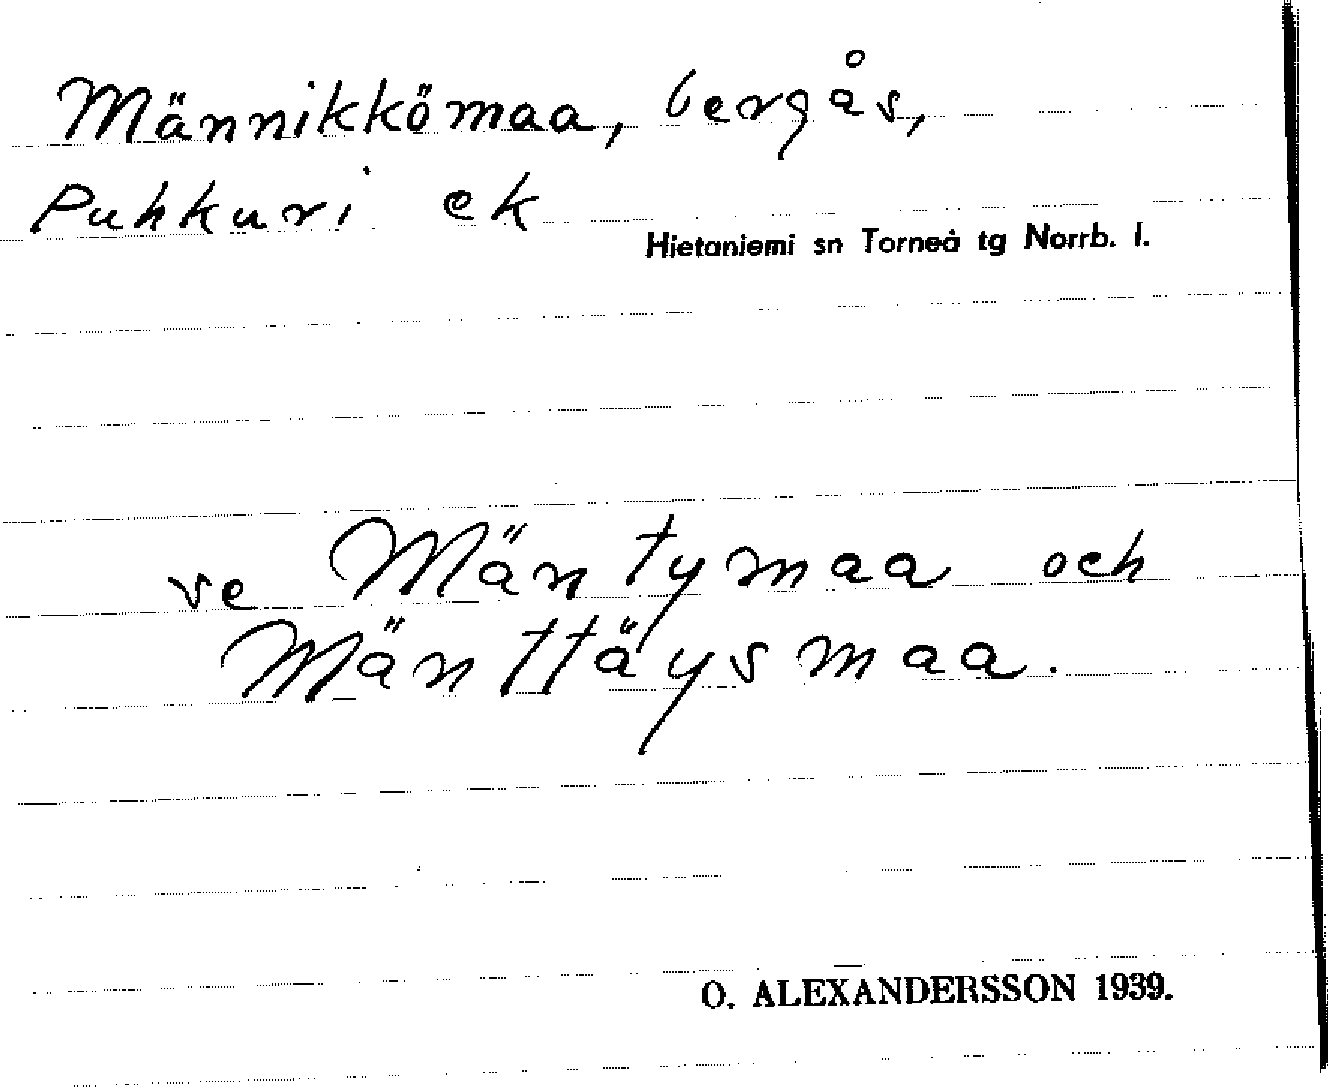 Männikkömaa, bergås,
Puhkuri ek
Hietaniemi sn Torneå tg Norrb. l.
se Mäntymaa och
Mänttäysmaa.
O. ALEXANDERSSON 1939.